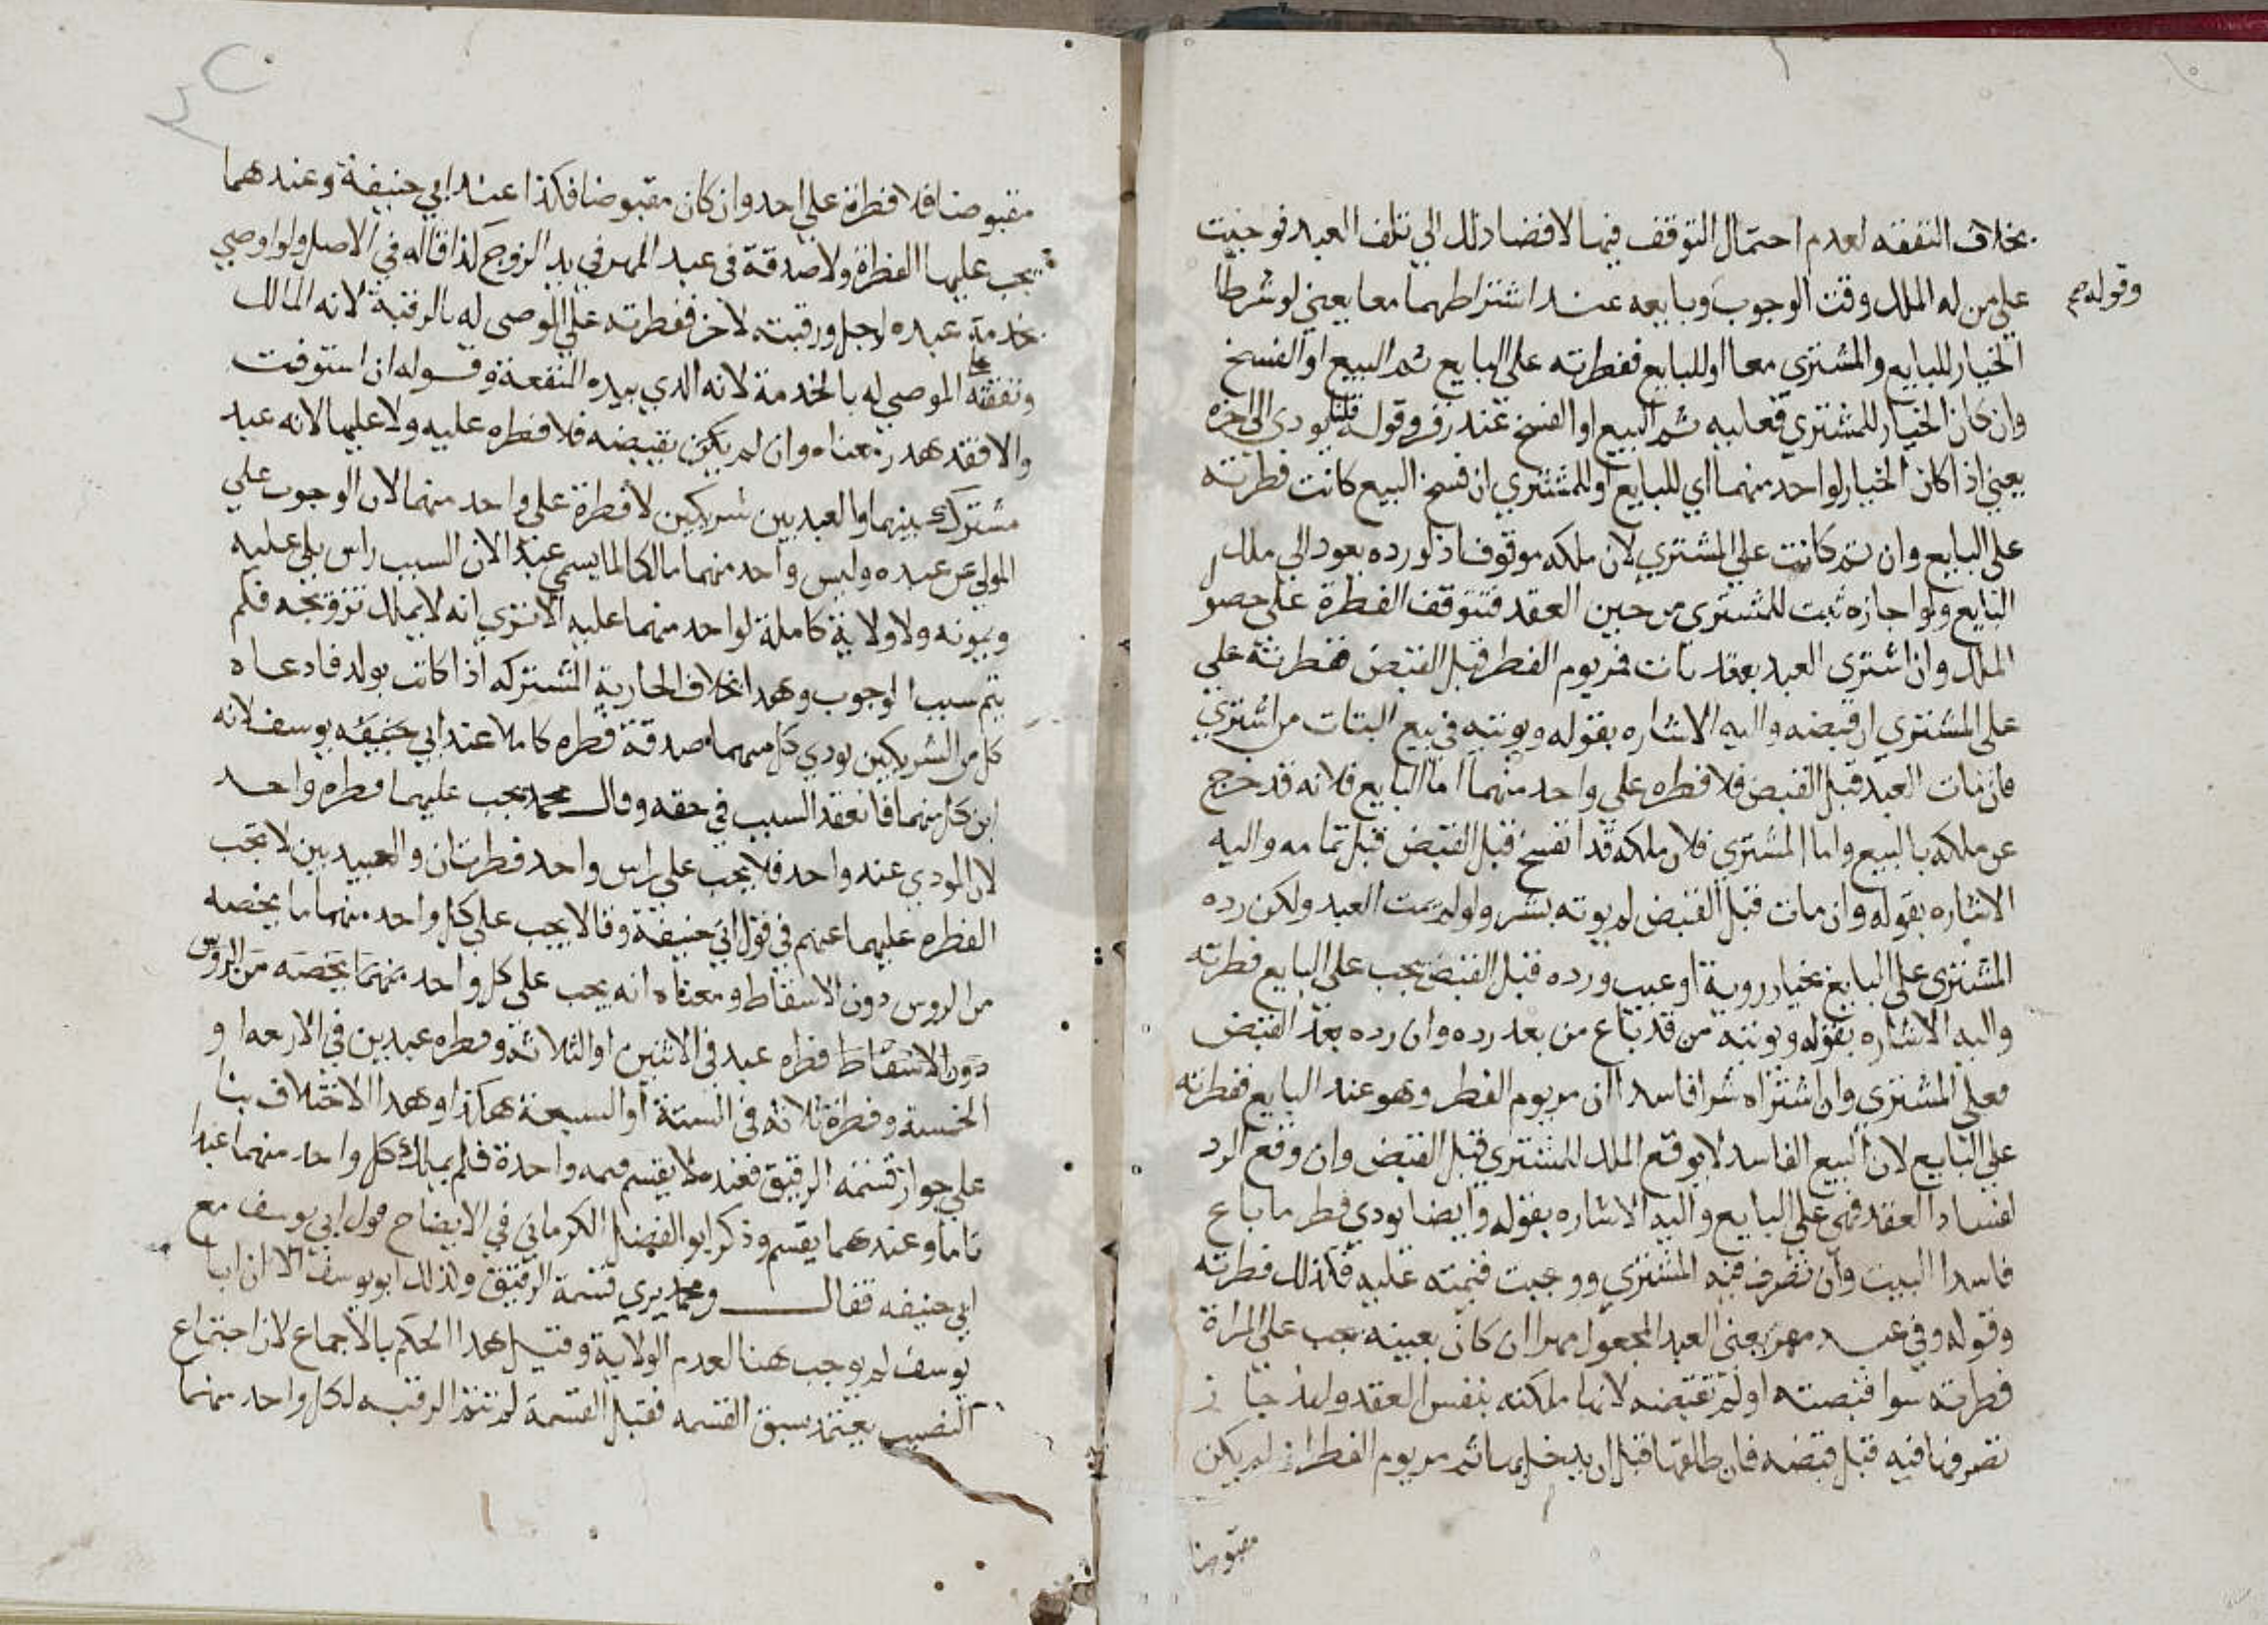 بخلاف النفقه لعدم احتمال التوقف فيها لافضا ذلك الي تلف العبد فوجبت
علي من له الملك وقت الوجوب وبايعه عند اشتراطهما معا يعني لو شرطا
وقوله صح
الخيار للبايع والمشتري معا او للبايع ففطرته علي البايع تم البيع او انفسخ
وان كان الخيار للمشتري فعليه تم البيع او انفسخ عند زفر وقوله يودي الي اخره
يعني اذا كان الخيار لواحد منهما اي للبايع او للمشتري ان فسخ البيع كانت فطرته
علي البايع وان تم كانت علي المشتري لان ملكه موقوف اذ لو رده يعود الي ملك
البايع ولو اجازه ثبت للمشتري من حين العقد فتتوقف الفطرة علي حصو
الملك وان اشترى العبد بعقد بات فمر يوم الفطر قبل القبض ففطرته علي
علي المشتري ان قبضه واليه الاشاره بقوله ويونته في بيع البتات من اشتري
فان مات العبد قبل القبض فلا فطره علي واحد منهما اما البايع فلانه قد خرج
عن ملكه بالبيع واما المشتري فلان ملكه قد انفسخ قبل القبض قبل تمامه واليه
الاشاره بقوله وان مات قبل القبض لم يوته بشر ولو لم يمت العبد ولكن رده
المشتري علي البايع بخيار روية او عيب ورده قبل القبض يجب علي البايع فطرته
واليه الاشاره بقوله ويونته من قد باع من بعد رده وان رده بعد القبض
فعلي المشتري وان اشتراه شرا فاسدا ان مر يوم الفطر وهو عند البايع ففطرته
علي البايع لان البيع الفاسد لا يوقع الملك للمشتري قبل القبض وان وقع الرد
لفساد العقد فهي علي البايع واليه الاشاره بقوله وايضا يودي فطر ما باع
فاسدا البيت وان تصرف فيه المشتري ووجبت قيمته عليه فكذلك فطرته
وقوله وفي عبد مهر يعني العبد المجعول مهرا ان كان بعينه يجب علي المراة
فطرته سوا قبضته او لم تقبضه لانها ملكته بنفس العقد ولهذ جاز
تصرفها فيه قبل قبضه فان طلقها قبل ان يدخل بها ثم مر يوم الفطر ان لم يكن
مقبوضا
مقبوضا فلا فطرة علي احد وان كان مقبوضا فكذا عند ابي حنيفة وعندهما
يجب عليها الفطرة ولا صدقة في عبد المهر في يد الزوج كذا قاله في الاصل ولو اوصي
بخدمة عبده لرجل ورقبته لاخر ففطرته علي الموصي له بالرقبة لانه المالك
ونفقته علي الموصي له بالخدمة لانه الذي بيده المنفعة وقوله ان استوفت
والا فقد هدر معناه وان لم يكن بقبضه فلا فطره عليه ولا عليها لانه عبد
مشترك بينهما والعبد بين شريكين لا فطرة علي واحد منهما لان الوجوب علي
المولي عن عبده وليس واحد منهما مالكا لما يسمي عبدا لان السبب راس يلي عليه
ويمونه ولا ولاية كاملة لواحد منهما عليه الا تري انه لا يملك تزويجه فلم
يتم سبب الوجوب وهذا بخلاف الجارية المشتركه اذا كانت بولد فادعاه
كل من الشريكين يودي كل منهما صدقة فطره كاملا عند ابي حنيفه يوسف لانه
ابن كل منهما فانعقد السبب في حقه وقال محمد يجب عليهما فطره واحد
لان المودي عنه واحد فلا يجب علي راس واحد فطرتان والعبيد بين لا تجب
الفطره عليهما عنهم في قول ابي حنيفة وقالا يجب علي كل واحد منهما ما يخصه
من الروس دون الاسقاط ومعناه انه يجب علي كل واحد منهما يخصه من الروس
دون الاسقاط فطره عبد في الاثنين او الثلاثه وفطره عبدين في الاربعه او
الخمسة وفطرة ثلاثه في الستة او السبعة هكذا وهذا الاختلاف بنا
علي جواز قسمة الرقيق فعنده لا يقسم قسمه واحدة فلم يملك كل واحد منهما عبدا
تاما وعندهما يقسم وذكر ابو الفضل الكرماني في الايضاح قول ابي يوسف مع
ابي حنيفه فقال ومحمد يري قسمة الرقيق ولذلك ابو يوسف الا ان ابا
يوسف لم يوجب هنا لعدم الولاية وقيل هذا الحكم بالاجماع لان اجتماع
النصيب يعتمد سبق القسمه فقبل القسمة لم تتم الرقبه لكل واحد منهما